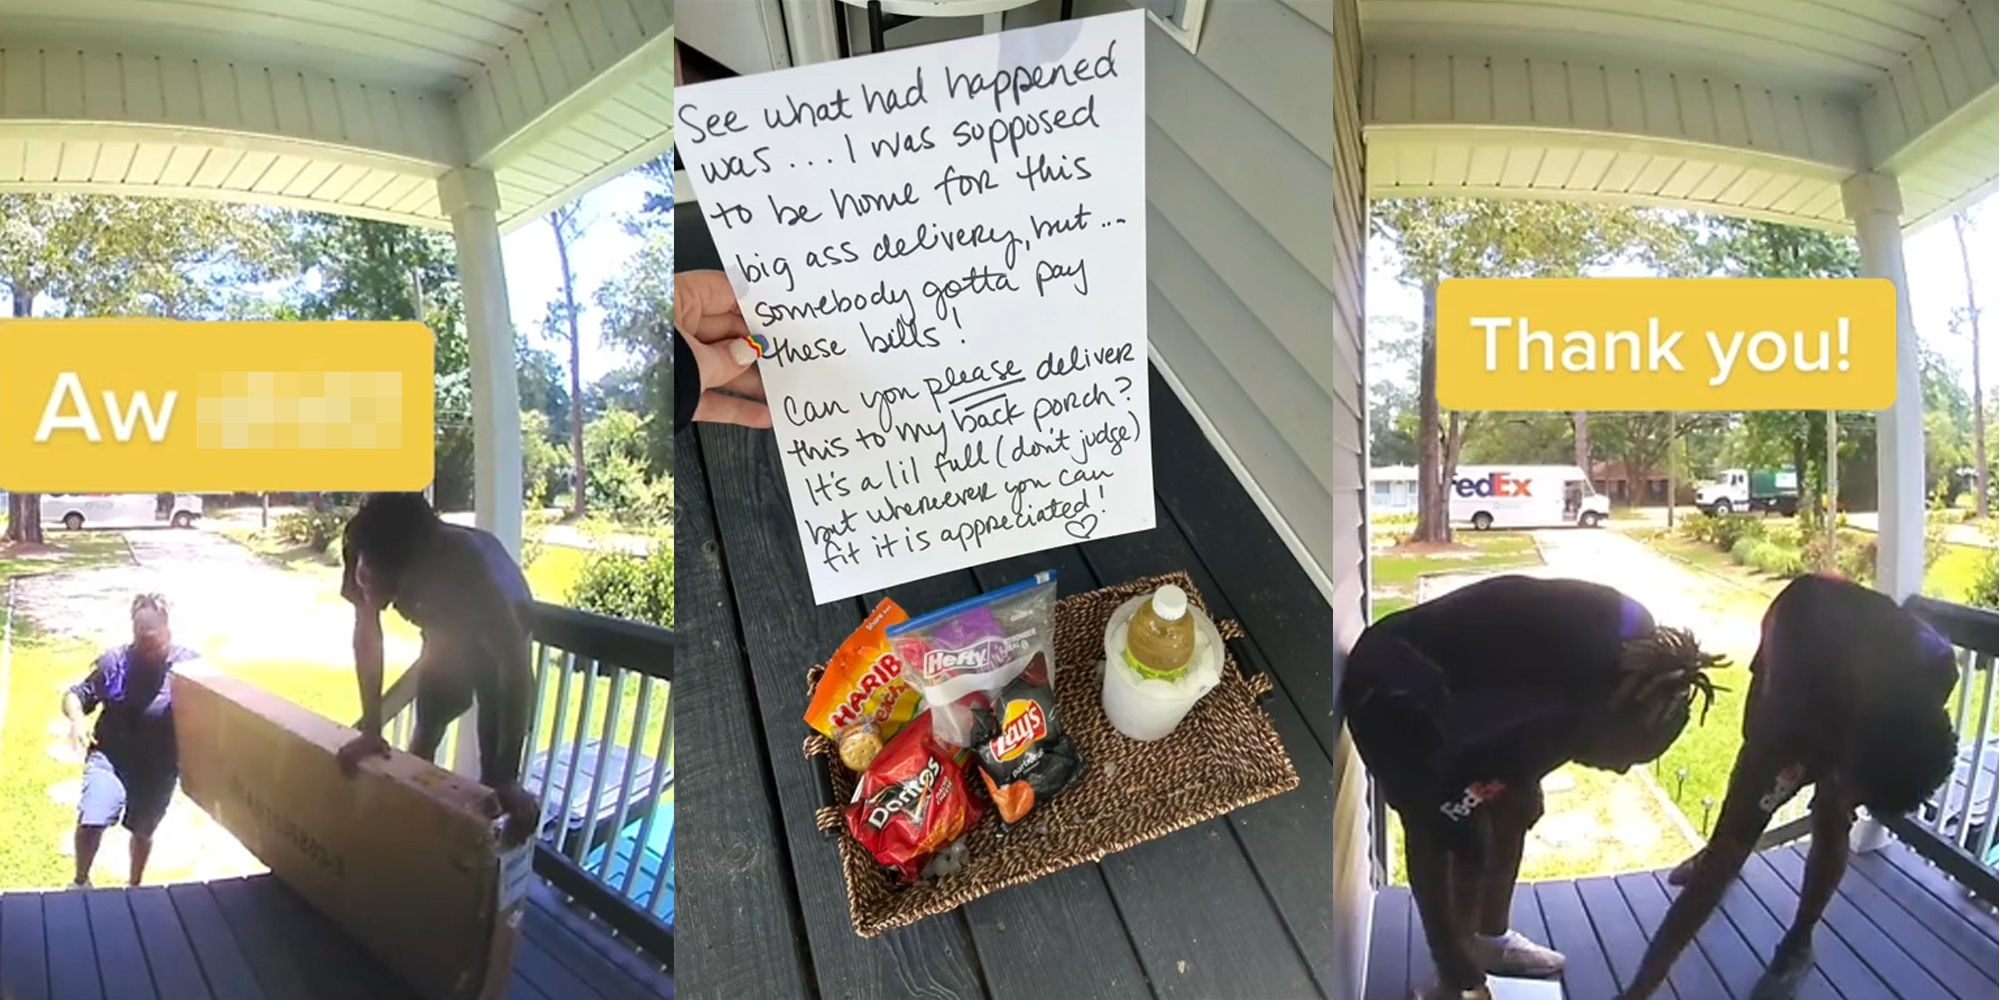 Aw
See what had happened
was... I was supposed
to be home for this
big ass delivery, but...
somebody gotta pay
these bills!
Can you please deliver
this to my back porch?
It's a lil full (don't judge)
but wherever you can
fit it is appreciated! ♡
HARIB
Hefty
Lay's
Doritos
Thank you!
edEx
FedEx
FedEx